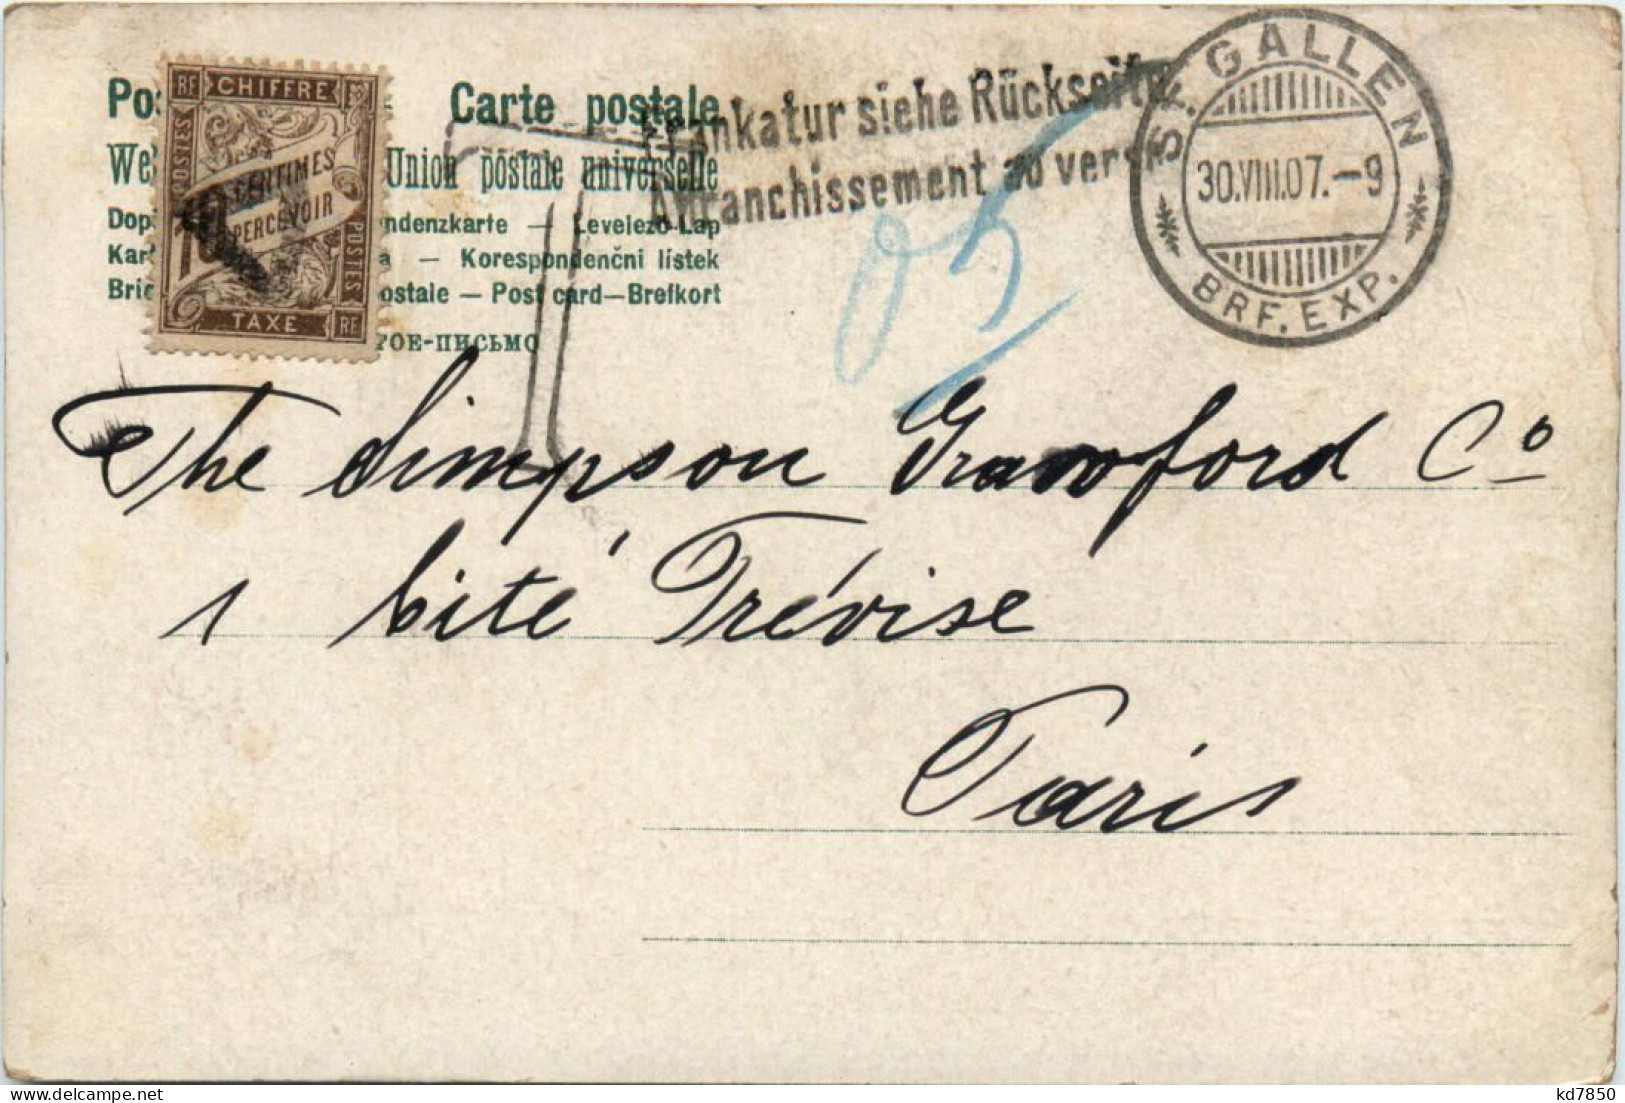 Carte postale
Union postale universelle
ndenzkarte — Levelező-Lap
— Korespondenčni lístek
ostale — Post card—Brefkort
ТОЕ-ПИСЬМО
RF CHIFFRE
POSTES
CENTIMES
PERCEVOIR
POSTES
TAXE RF
T
T
Frankatur siehe Rückseite
Affranchissement au verso
05
ST. GALLEN
30.VIII.07.-9
BRF. EXP.
The Simpson Crawford Co
1 Cité Trévise
Paris
kd7850